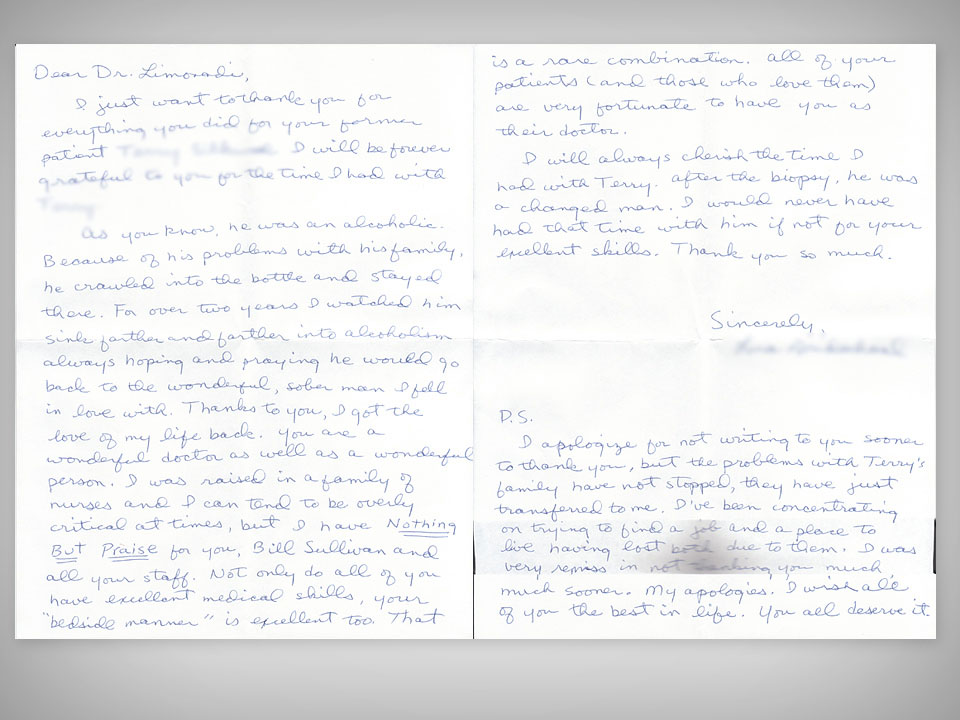 Dear Dr. Limonadi,
I just want to thank you for
everything you did for your former
patient I will be forever
grateful to you for the time I had with
Terry.
As you know, he was an alcoholic.
Because of his problems with his family,
he crawled into the bottle and stayed
there. For over two years I watched him
sink farther and farther into alcoholism
always hoping and praying he would go
back to the wonderful, sober man I fell
in love with. Thanks to you, I got the
love of my life back. You are a
wonderful doctor as well as a wonderful
person. I was raised in a family of
nurses and I can tend to be overly
critical at times, but I have Nothing
But Praise for you, Bill Sullivan and
all your staff. Not only do all of you
have excellent medical skills, your
"bedside manner" is excellent too. That
is a rare combination. All of your
patients (and those who love them)
are very fortunate to have you as
their doctor.
I will always cherish the time I
had with Terry. After the biopsy, he was
a changed man. I would never have
had that time with him if not for your
excellent skills. Thank you so much.
Sincerely,
P.S.
I apologize for not writing to you sooner
to thank you, but the problems with Terry's
family have not stopped, they have just
transferred to me. I've been concentrating
on trying to find a job and a place to
live having lost both due to them. I was
very remiss in not thanking you much
much sooner. My apologies. I wish all
of you the best in life. You all deserve it.